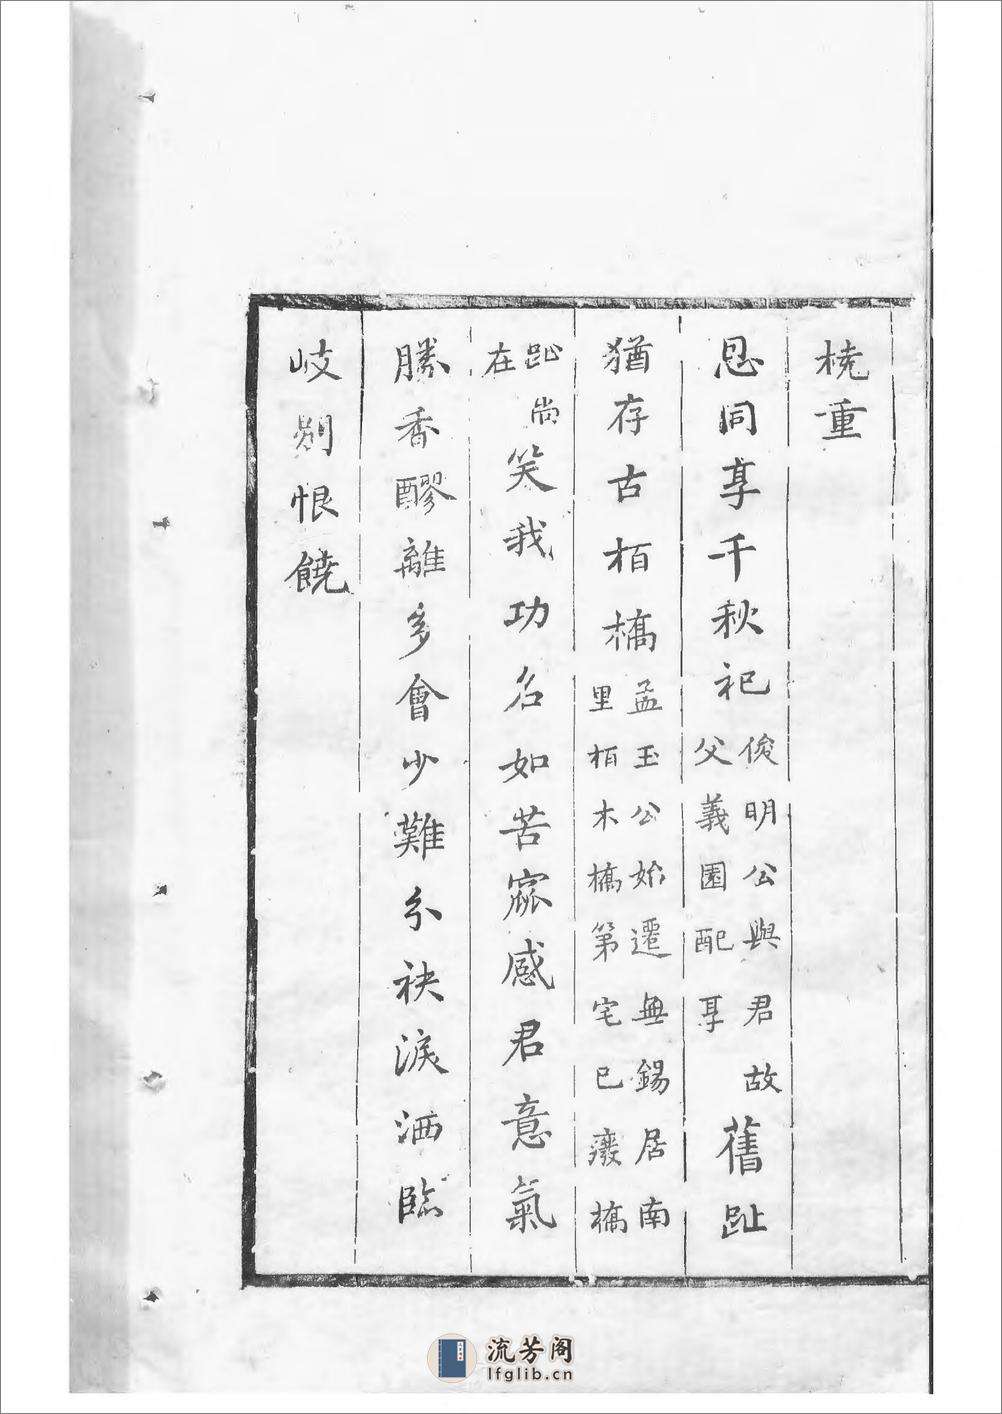 橈重
恩同享千秋祀俊明公與君故父義園配享舊趾
猶存古栢橋孟玉公始遷無錫居南里栢木橋第宅已廢橋
趾尚在笑我功名如苦寐感君意氣
勝香醪離多會少難分袂淚洒臨
岐别恨饒
流芳阁
lfglib.cn